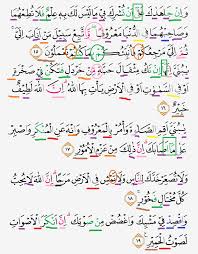 وَاِنْ جَاهَدٰكَ عَلٰٓى اَنْ تُشْرِكَ بِيْ مَا لَيْسَ لَكَ بِهٖ عِلْمٌ فَلَا تُطِعْهُمَا
وَصَاحِبْهُمَا فِى الدُّنْيَا مَعْرُوْفًا وَّاتَّبِعْ سَبِيْلَ مَنْ اَنَابَ اِلَيَّ
ثُمَّ اِلَيَّ مَرْجِعُكُمْ فَاُنَبِّئُكُمْ بِمَا كُنْتُمْ تَعْمَلُوْنَ ١٥
يٰبُنَيَّ اِنَّهَآ اِنْ تَكُ مِثْقَالَ حَبَّةٍ مِّنْ خَرْدَلٍ فَتَكُنْ فِيْ صَخْرَةٍ
اَوْ فِى السَّمٰوٰتِ اَوْ فِى الْاَرْضِ يَأْتِ بِهَا اللّٰهُ اِنَّ اللّٰهَ لَطِيْفٌ
خَبِيْرٌ ١٦
يٰبُنَيَّ اَقِمِ الصَّلٰوةَ وَأْمُرْ بِالْمَعْرُوْفِ وَانْهَ عَنِ الْمُنْكَرِ وَاصْبِرْ
عَلٰى مَآ اَصَابَكَ اِنَّ ذٰلِكَ مِنْ عَزْمِ الْاُمُوْرِ ١٧
وَلَا تُصَعِّرْ خَدَّكَ لِلنَّاسِ وَلَا تَمْشِ فِى الْاَرْضِ مَرَحًا اِنَّ اللّٰهَ لَا يُحِبُّ
كُلَّ مُخْتَالٍ فَخُوْرٍ ١٨
وَاقْصِدْ فِيْ مَشْيِكَ وَاغْضُضْ مِنْ صَوْتِكَ اِنَّ اَنْكَرَ الْاَصْوَاتِ
لَصَوْتُ الْحَمِيْرِ ١٩